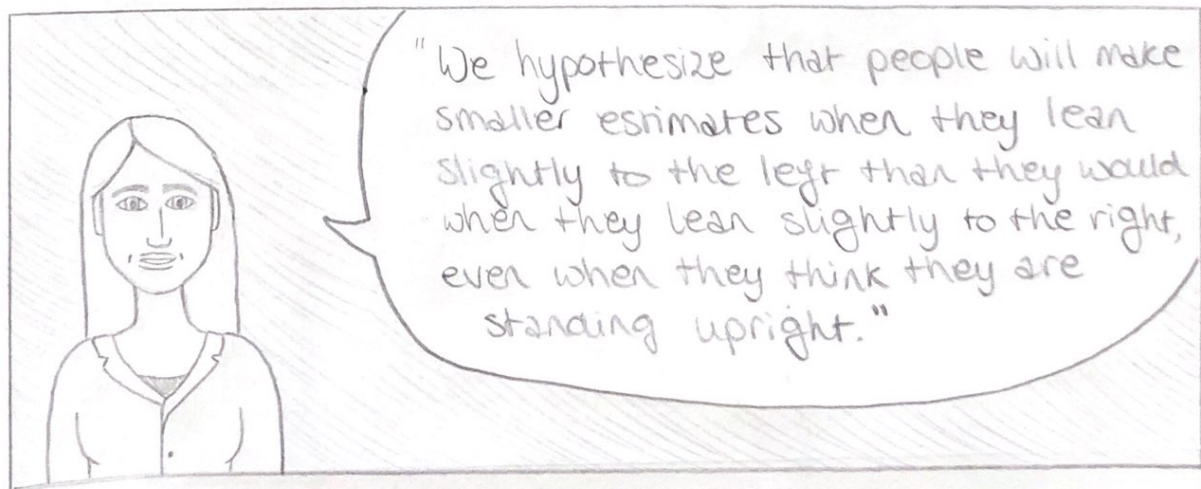 "We hypothesize that people will make
smaller estimates when they lean
slightly to the left than they would
when they lean slightly to the right,
even when they think they are
standing upright."